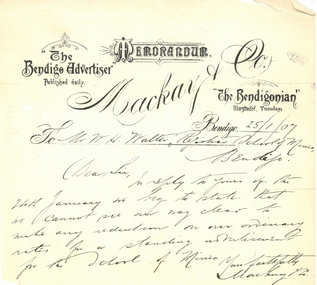 Memorandum.
"The
Bendigo Advertiser"
Published daily.
Mackay & Co.
"The Bendigonian"
Published Tuesdays
Bendigo, 25/1/07
To Mr. W. H. Walter, Registrar School of Mines,
Bendigo.
Dear Sir,
In reply to yours of the
24th January we beg to state that
we cannot see our way clear to
make any reduction on our ordinary
rates for a standing advertisement
for the School of Mines.
Yours faithfully
Mackay & Co